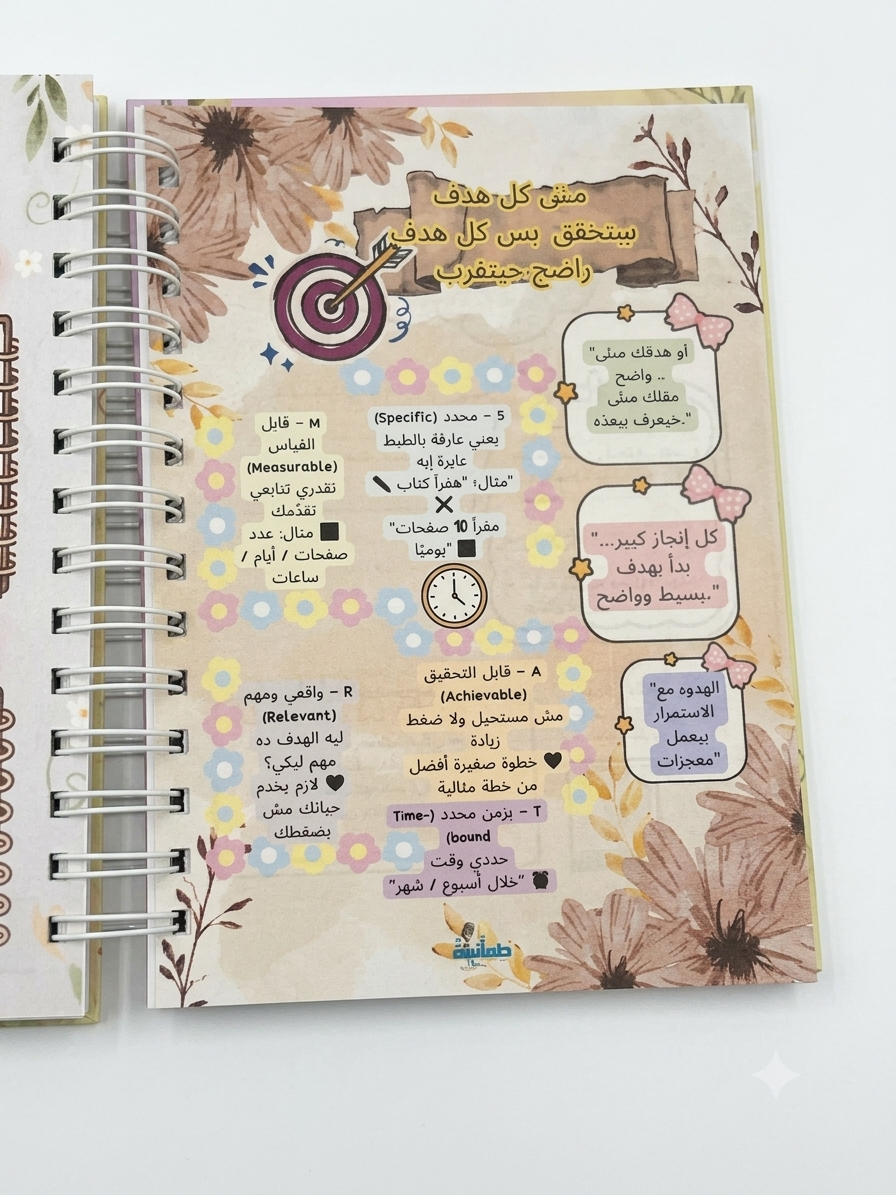 مىٔى كل هدف
بيتخقق بس كل هدف
راضح حيتقرب
"أو هدقك مىٔى
.. واضح
مقلك مىٔى
خيعرف بيعذه."
5 – محدد (Specific)
يعني عارفة بالطبط
عايرة إيه
مثال؛ "هفرآ كتاب
مفرأ 10 صفحات"
يوميًا"
M – قابل
الفياس
(Measurable)
نقدري تتابعي
تقدّمك
مثال: عدد
صفحات / أيام /
ساعات
كل إنجاز كبير..."
بدأ بهدف
بسيط وواضح."
A – قابل التحقيق
(Achievable)
مش مستحيل ولا ضغط
زيادة
خطوة صغيرة أفضل
من خطة مثالية
R – واقفي ومهم
(Relevant)
ليه الهدف ده
مهم ليكي؟
لازم يخدم
حياتك مش
بضقطك
"الهدوه مع
الاستمرار
بيعمل
معجزات"
T – بزمن محدد (Time-
bound)
حددي وقت
"خلال أسبوع / شهر"
طمأنينة